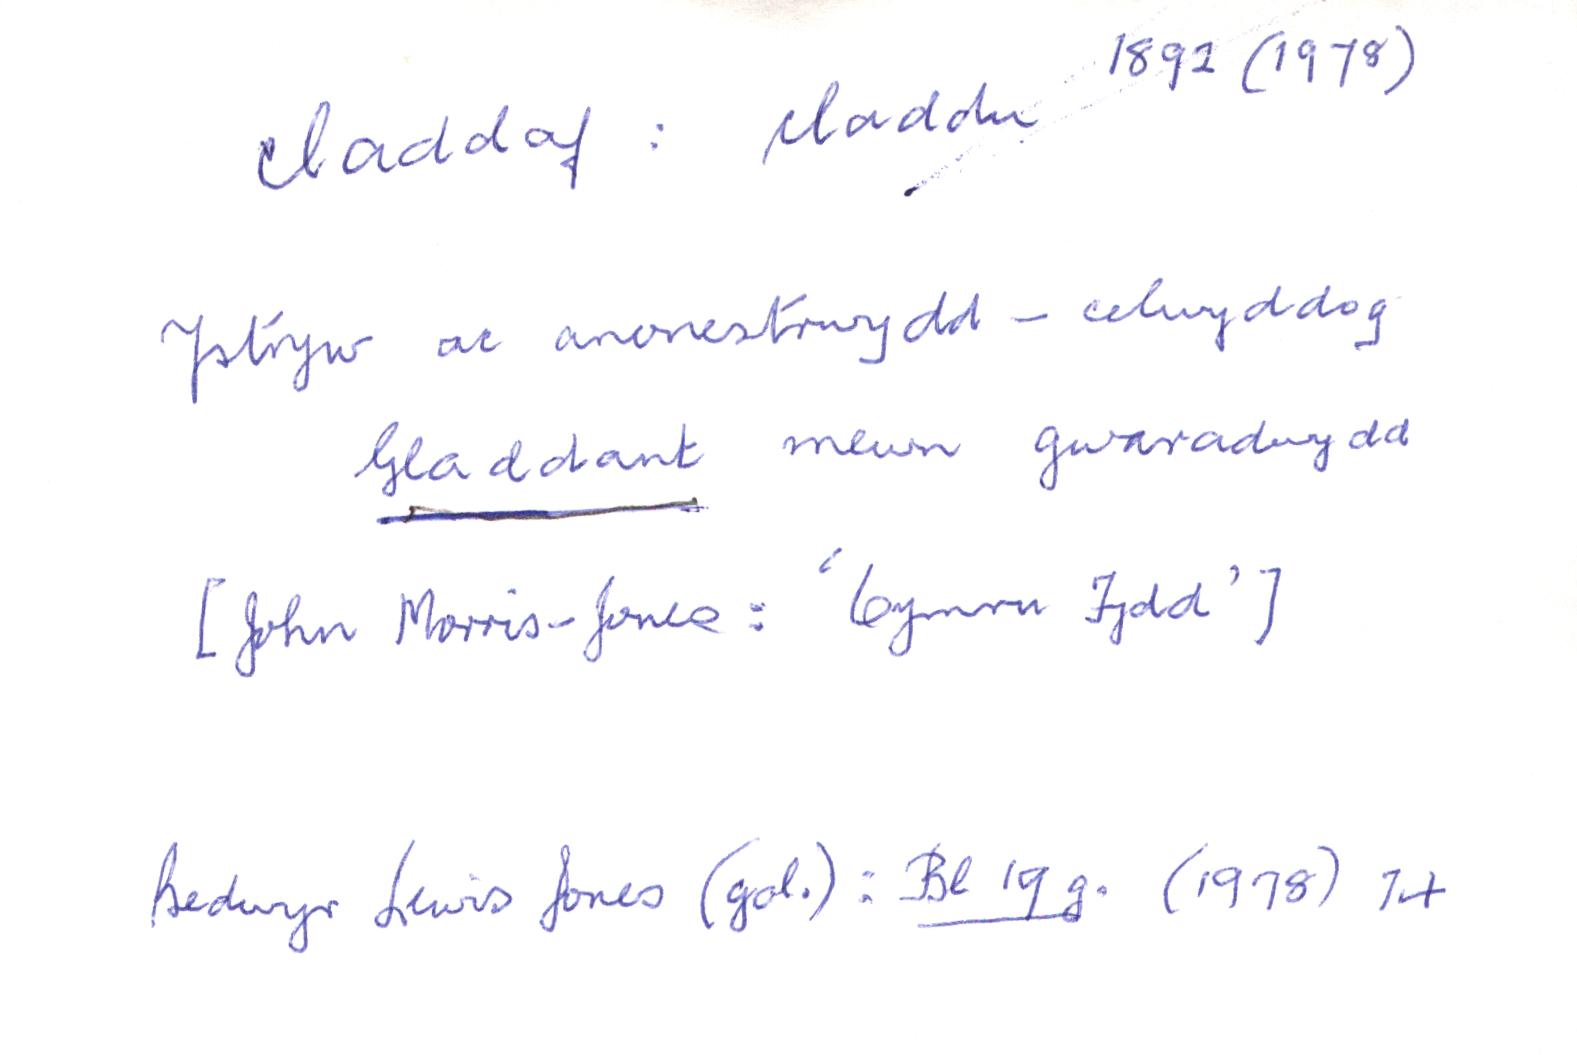 claddaf : claddu 1892 (1978)
Ystryw ac anonestrwydd – celwyddog
Gladdant mewn gwaradwydd
[John Morris-Jones : 'Cymru Fydd']
Bedwyr Lewis Jones (gol.) : Bl 19 g. (1978) 74